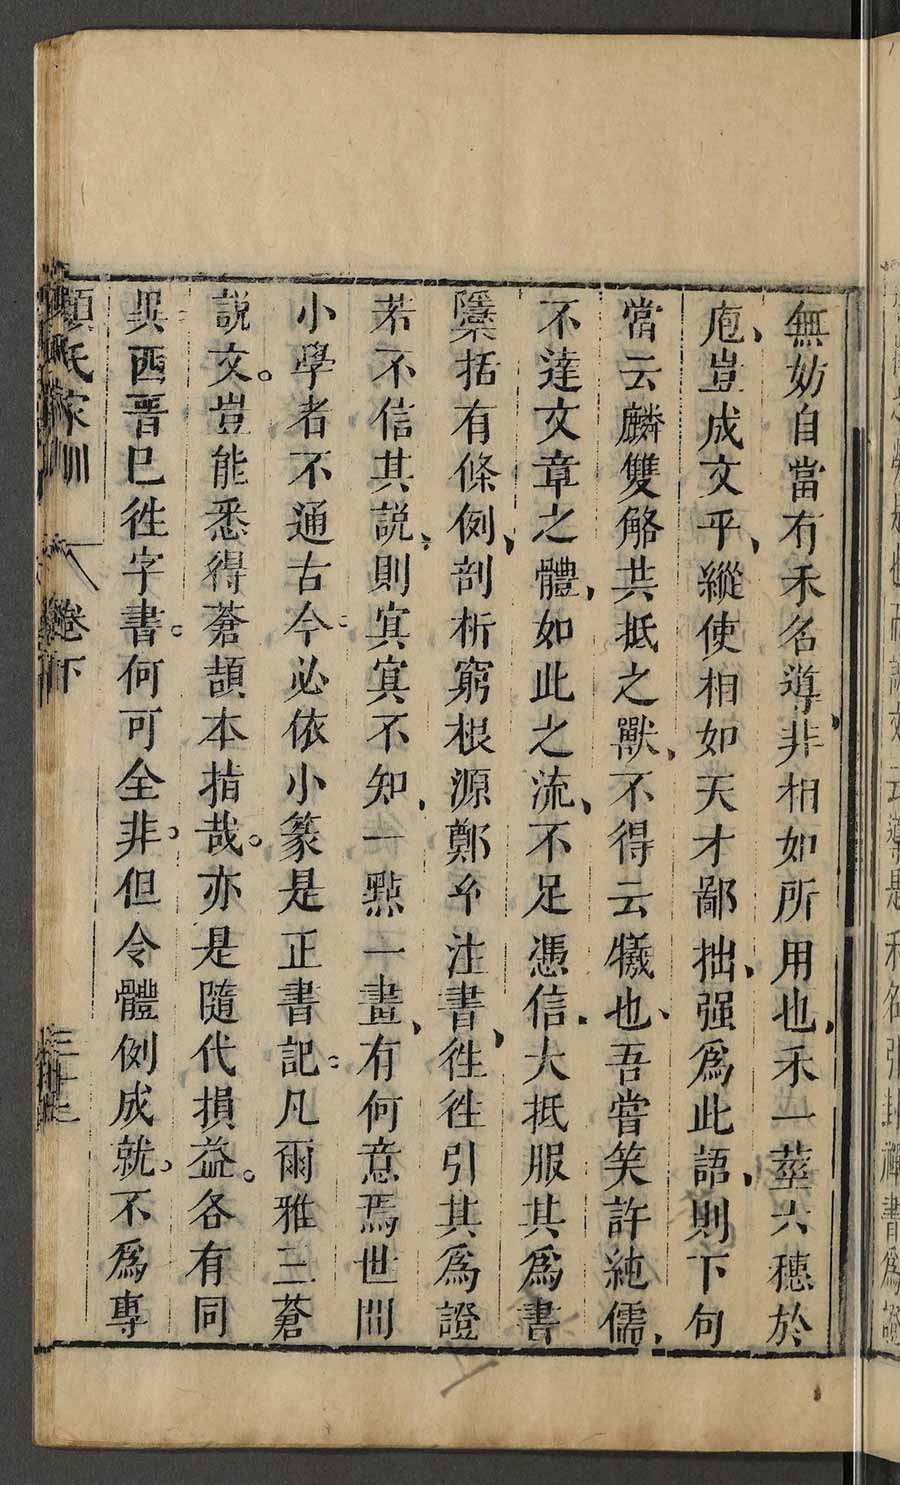 無妨自當有禾名導非相如所用也禾一莖六穗於
庖豈成文乎縱使相如天才鄙拙强爲此語則下句
當云麟雙觡共抵之獸不得云犧也吾嘗笑許純儒
不達文章之體如此之流不足憑信大抵服其爲書
隱栝有條例剖析窮根源鄭玄注書徃徃引其爲證
若不信其説則冥冥不知一㸃一畫有何意焉世間
小學者不通古今必依小篆是正書記凡爾雅三蒼
説文豈能悉得蒼頡本指哉亦是隨代損益各有同
異西晉已徃字書何可全非但令體例成就不爲專
顏氏家訓 卷下